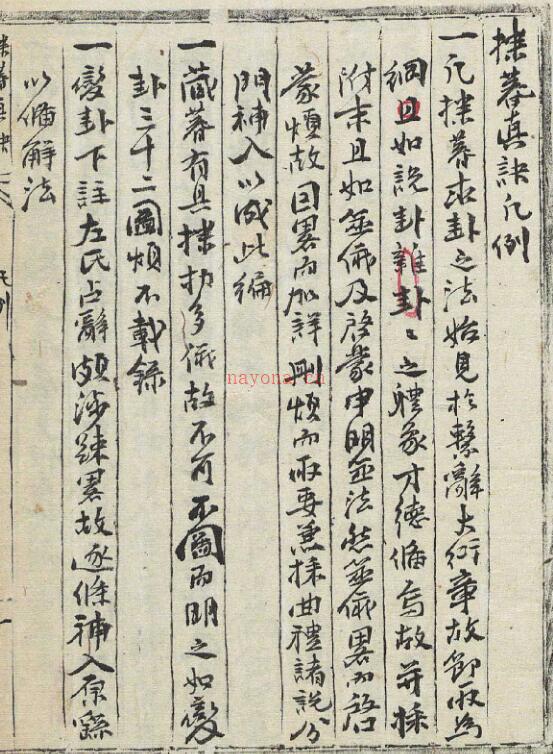 揲蓍真訣凡例
一凡揲蓍求卦之法始見於繫辭大衍章故節取為
綱且如說卦雜卦〻之體象才德備焉故并採
附末且如筮儀及啓蒙申明筮法然筮儀畧而啓
蒙煩故因畧而加詳刪煩而取要兼採曲禮諸說分
門補入以成此編
一藏蓍有具揲扐多儀故不可不圖而明之如變
卦三十二圖煩不載錄
一變卦下註左氏占辭頗涉疎畧故逐條補入原繇
以備解法
揲蓍真訣
凡例
一
nayona.cn